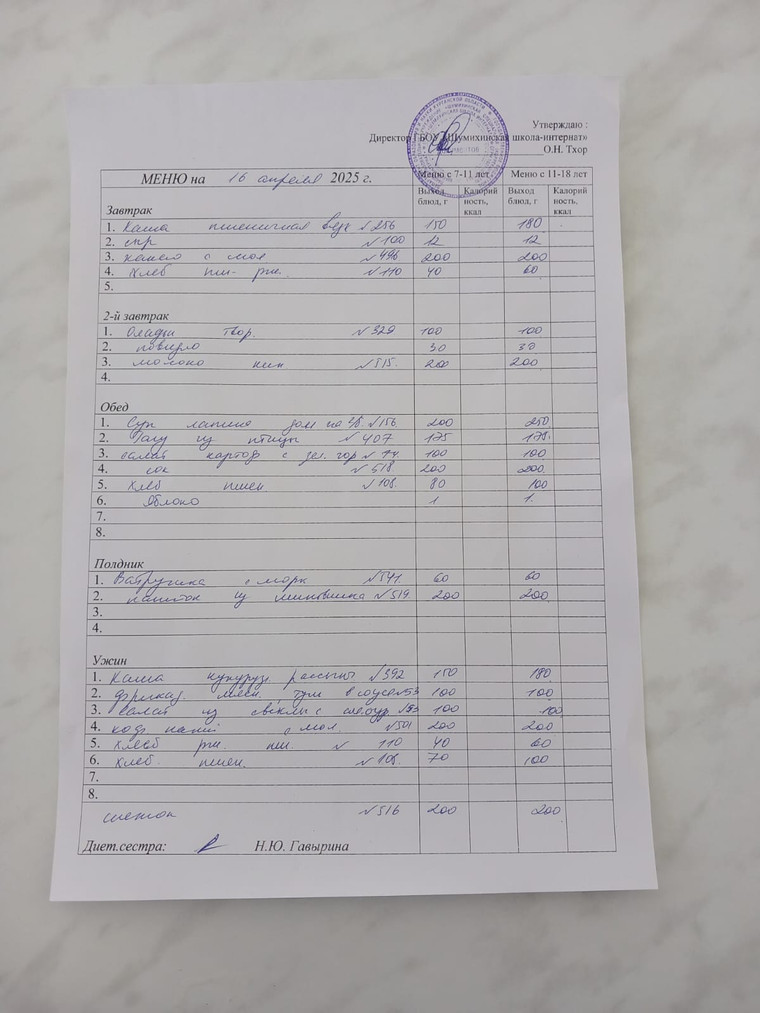 Утверждаю :
Директор ГБОУ «Шумихинская школа-интернат»
О.Н. Тхор
МЕНЮ на 16 апреля 2025 г. Меню с 7-11 лет Меню с 11-18 лет
Завтрак Выход блюд, г Калорийность, ккал Выход блюд, г Калорийность, ккал
1. Каша пшеничная вязк №256 150 180
2. сыр №100 12 12
3. какао с мол №496 200 200
4. Хлеб пш- рж. №110 40 60
5.
2-й завтрак
1. Оладьи твор. №329 100 100
2. повидло 30 30
3. молоко кип №515. 200 200
4.
Обед
1. Суп лапша дом на №156 200 250
2. Рагу из птицы №407 175 175.
3. салат картоф с зел. гор № 100 100
4. сок №518 200 200
5. Хлеб пшен №108. 80 100
6. Яблоко 1 1.
7.
8.
Полдник
1. Ватрушка с морк №541 60 60
2. напиток из шиповника №519 200 200
3.
4.
Ужин
1. Каша кукуруз. рассыпч №392 150 180
2. фрикад. мясн. туш в соусе 100 100
3. салат из свеклы с сол.огур 100 100
4. кофе напит с мол. №501 200 200
5. Хлеб рж. пш. № 110 40 60
6. Хлеб. пшен. №108. 70 100
7.
8.
снежок №516 200 200
Диет.сестра: Н.Ю. Гавырина